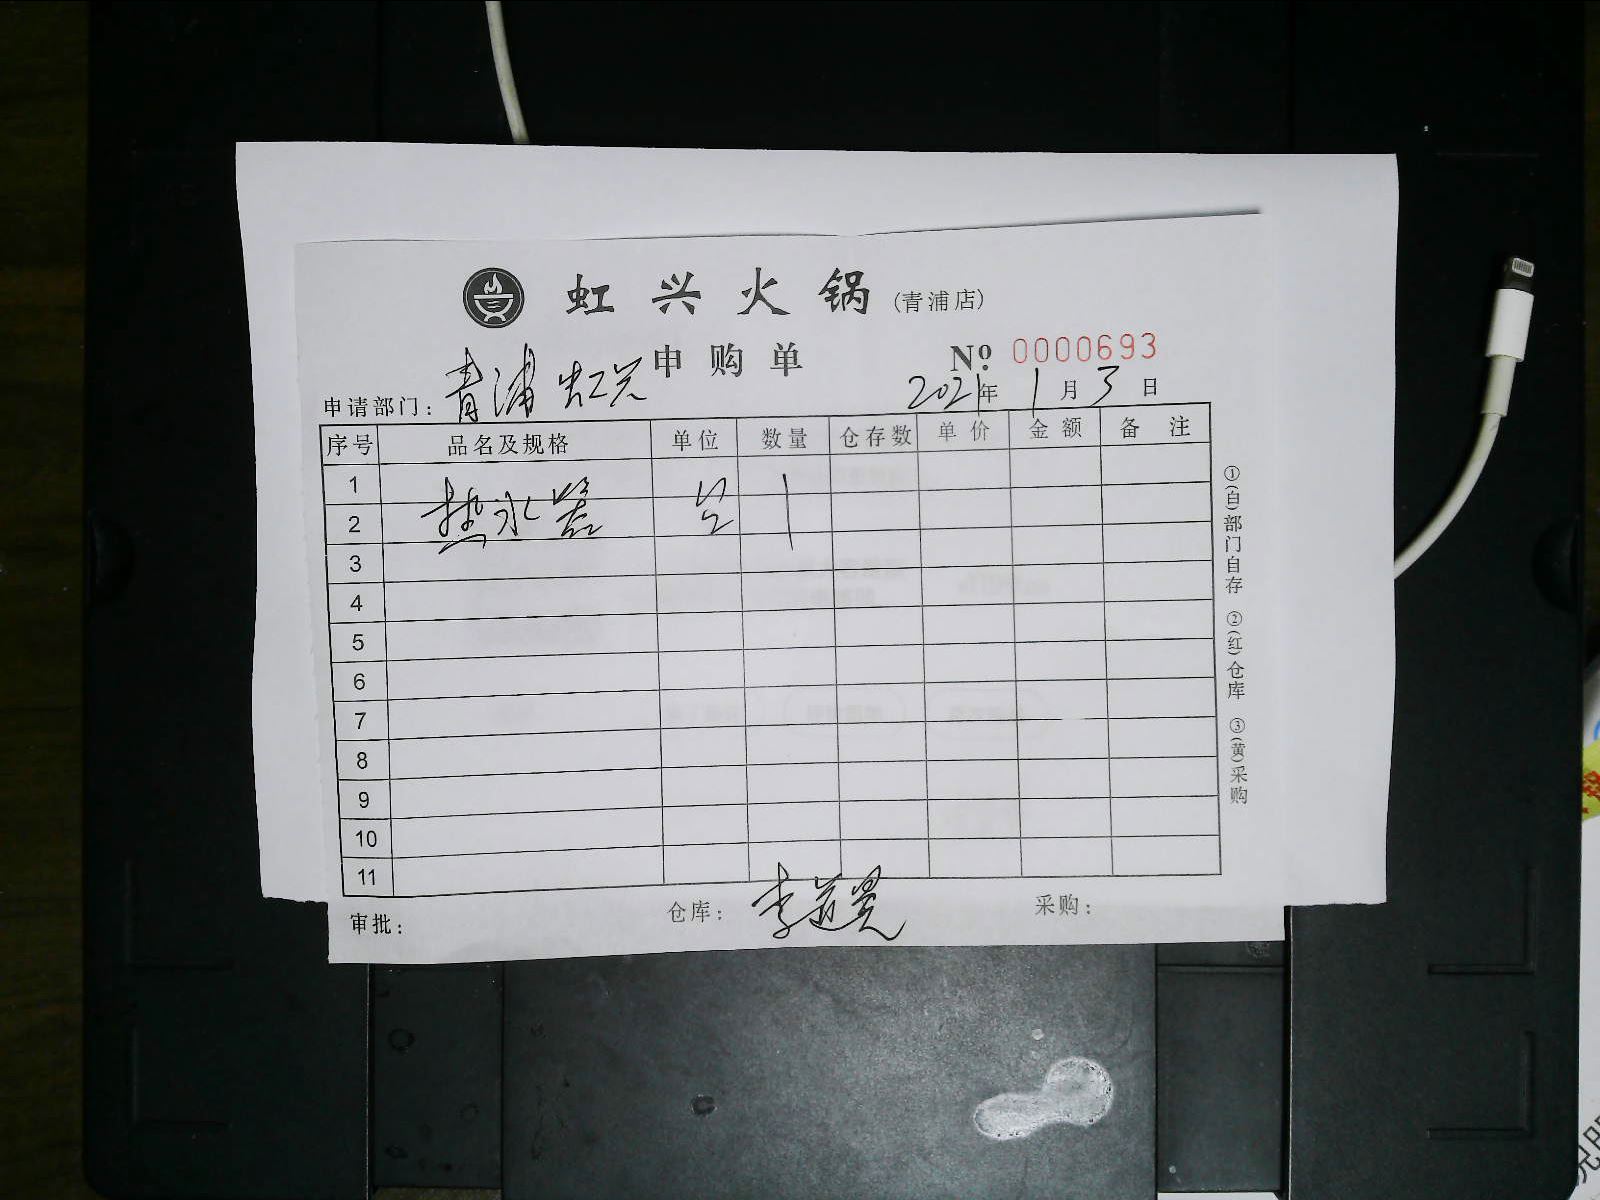 虹兴火锅(青浦店)
申购单 Nº 0000693
申请部门: 青浦虹兴 2021年1月3日
序号 品名及规格 单位 数量 仓存数 单价 金额 备注
1
2 热水器 台 1
3
4
5
6
7
8
9
10
11
审批: 仓库: 李 采购:
①(白)部门自存 ②(红)仓库 ③(黄)采购